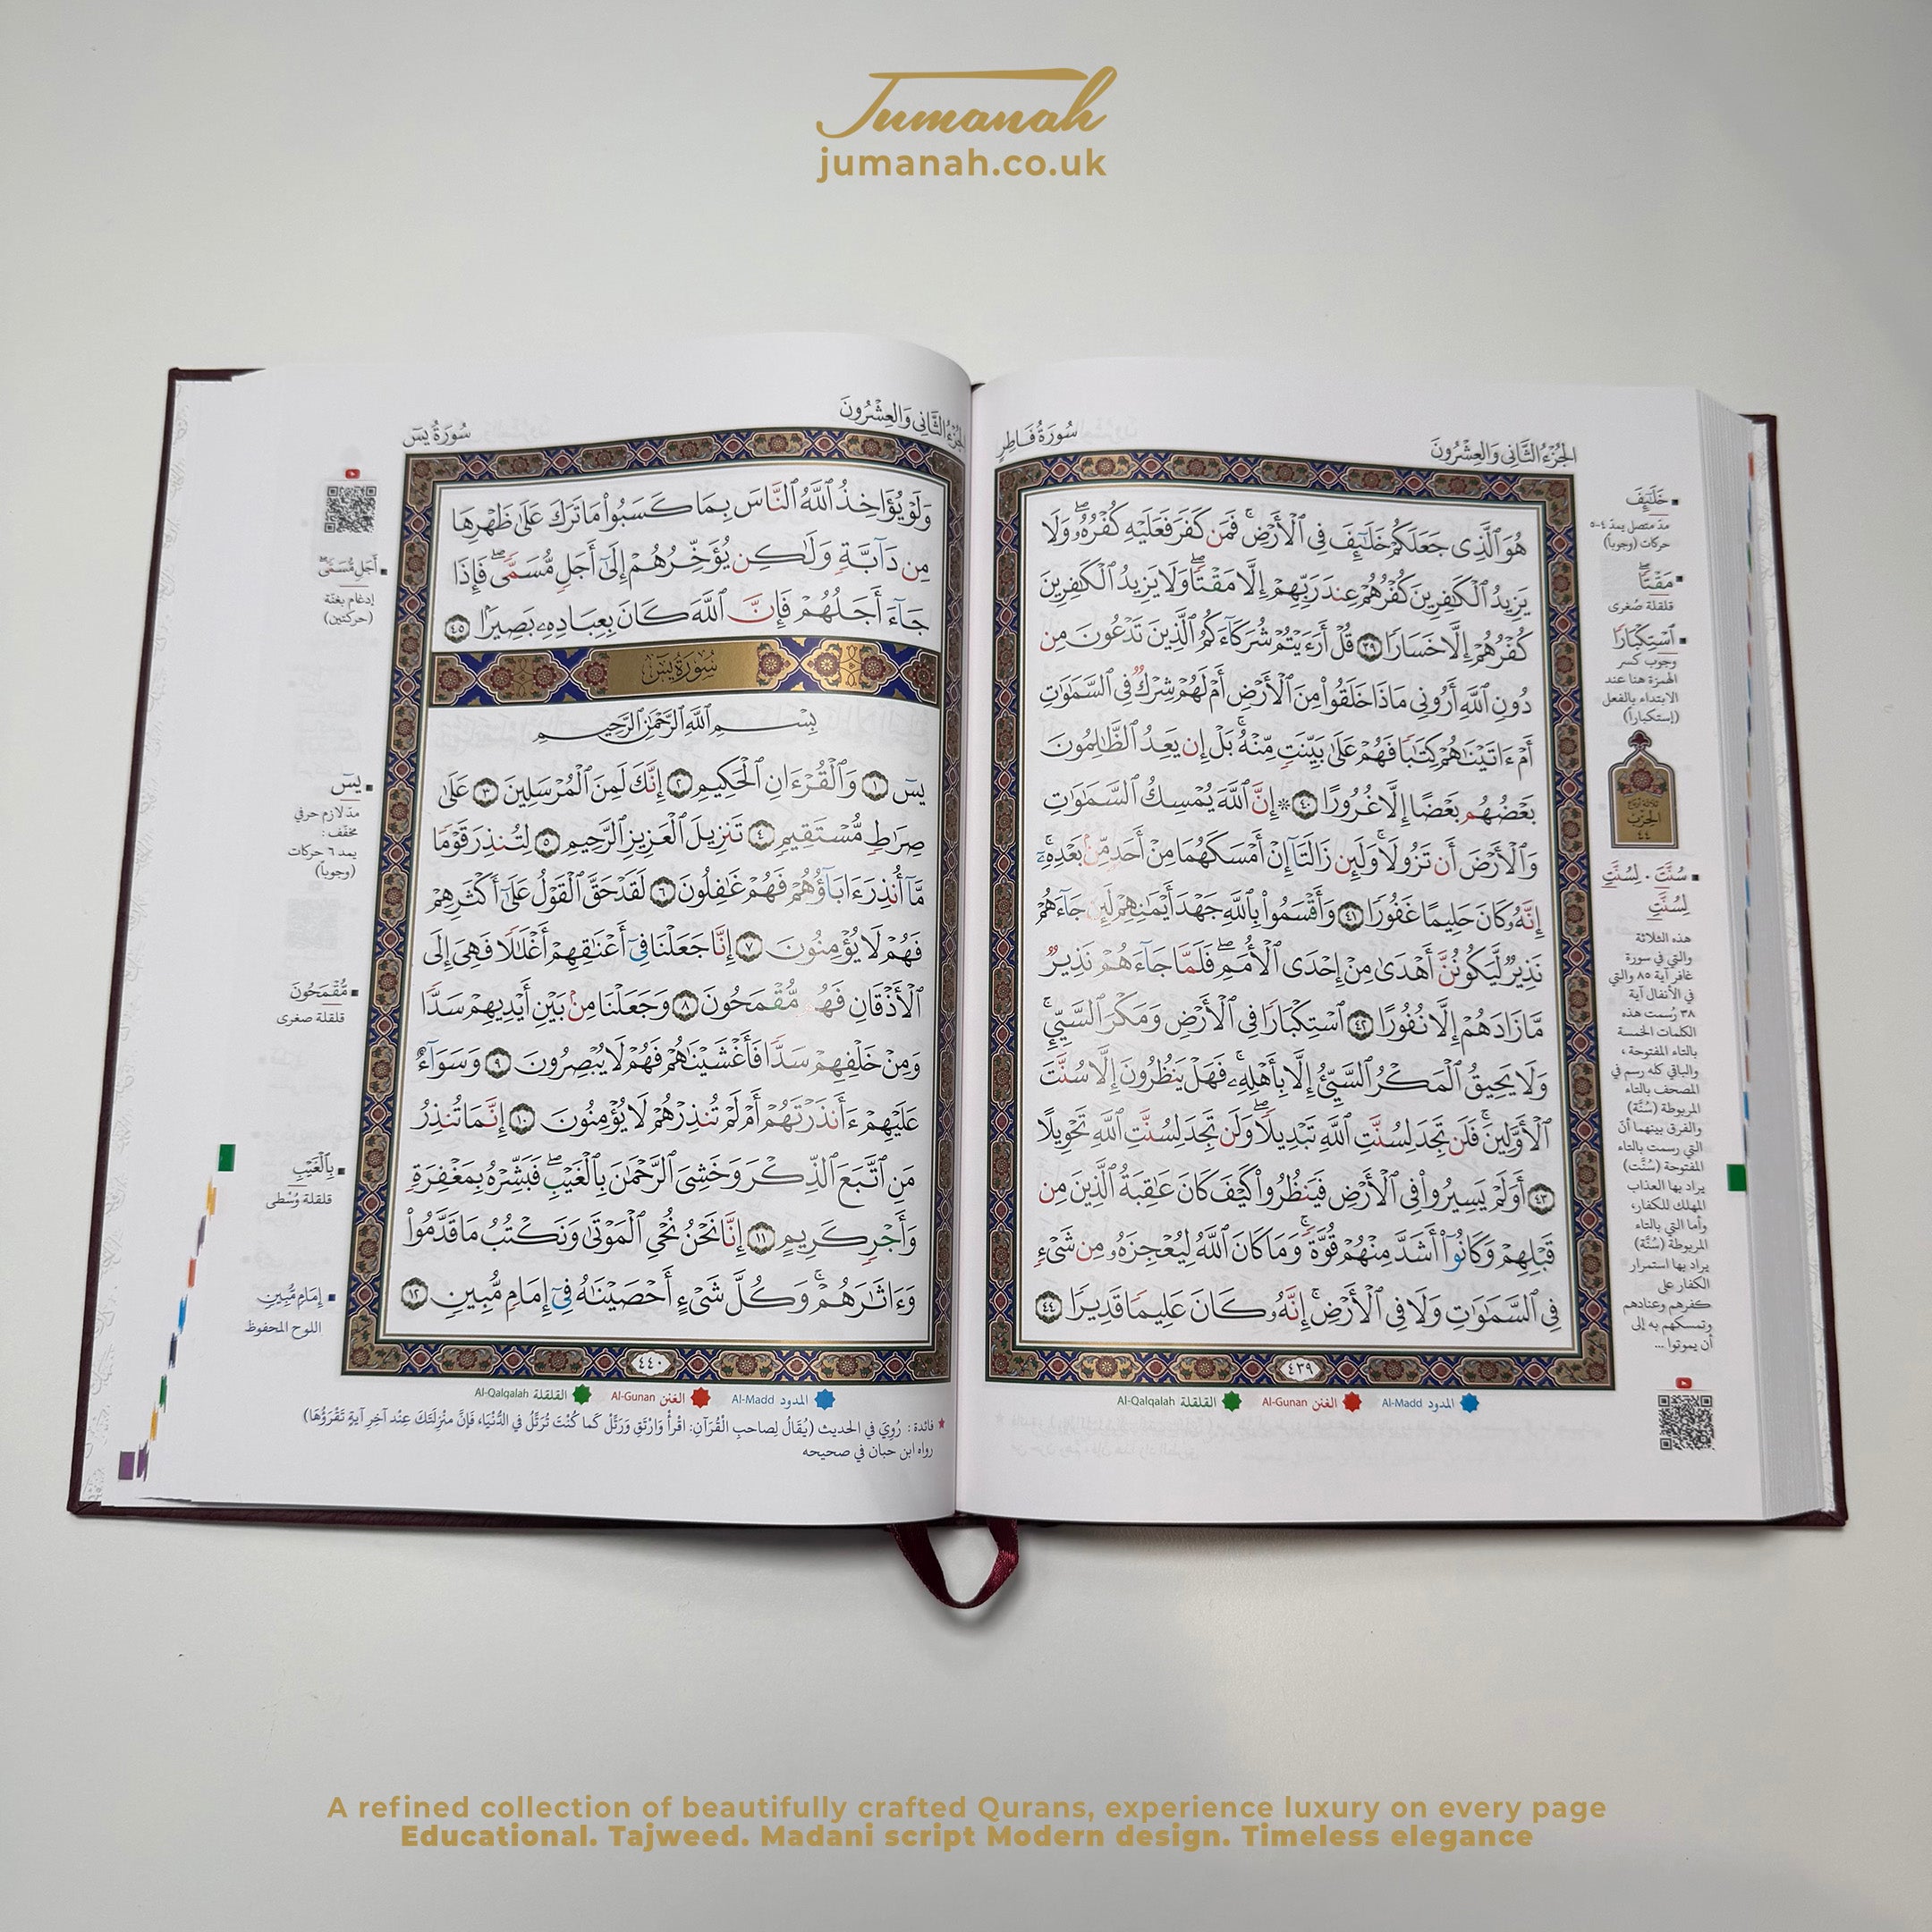 Jumanah
jumanah.co.uk
سُورَةُ فَاطِرٍ
الجُزْءُ الثَّانِي وَالعِشْرُونَ
هُوَ ٱلَّذِى جَعَلَكُمْ خَلَٰٓئِفَ فِى ٱلْأَرْضِ ۚ فَمَن كَفَرَ فَعَلَيْهِ كُفْرُهُۥ ۖ وَلَا
يَزِيدُ ٱلْكَٰفِرِينَ كُفْرُهُمْ عِندَ رَبِّهِمْ إِلَّا مَقْتًا ۖ وَلَا يَزِيدُ ٱلْكَٰفِرِينَ
كُفْرُهُمْ إِلَّا خَسَارًا ٣٩ قُلْ أَرَءَيْتُمْ شُرَكَآءَكُمُ ٱلَّذِينَ تَدْعُونَ مِن
دُونِ ٱللَّهِ أَرُونِى مَاذَا خَلَقُوا۟ مِنَ ٱلْأَرْضِ أَمْ لَهُمْ شِرْكٌ فِى ٱلسَّمَٰوَٰتِ
أَمْ ءَاتَيْنَٰهُمْ كِتَٰبًا فَهُمْ عَلَىٰ بَيِّنَتٍ مِّنْهُ ۚ بَلْ إِن يَعِدُ ٱلظَّٰلِمُونَ
بَعْضُهُم بَعْضًا إِلَّا غُرُورًا ٤٠ ۞ إِنَّ ٱللَّهَ يُمْسِكُ ٱلسَّمَٰوَٰتِ
وَٱلْأَرْضَ أَن تَزُولَا ۚ وَلَئِن زَالَتَآ إِنْ أَمْسَكَهُمَا مِنْ أَحَدٍ مِّنۢ بَعْدِهِۦٓ ۚ
إِنَّهُۥ كَانَ حَلِيمًا غَفُورًا ٤١ وَأَقْسَمُوا۟ بِٱللَّهِ جَهْدَ أَيْمَٰنِهِمْ لَئِن جَآءَهُمْ
نَذِيرٌ لَّيَكُونُنَّ أَهْدَىٰ مِنْ إِحْدَى ٱلْأُمَمِ ۖ فَلَمَّا جَآءَهُمْ نَذِيرٌ
مَّا زَادَهُمْ إِلَّا نُفُورًا ٤٢ ٱسْتِكْبَارًا فِى ٱلْأَرْضِ وَمَكْرَ ٱلسَّيِّئِ ۚ
وَلَا يَحِيقُ ٱلْمَكْرُ ٱلسَّيِّئُ إِلَّا بِأَهْلِهِۦ ۚ فَهَلْ يَنظُرُونَ إِلَّا سُنَّتَ
ٱلْأَوَّلِينَ ۚ فَلَن تَجِدَ لِسُنَّتِ ٱللَّهِ تَبْدِيلًا ۖ وَلَن تَجِدَ لِسُنَّتِ ٱللَّهِ تَحْوِيلًا
٤٣ أَوَلَمْ يَسِيرُوا۟ فِى ٱلْأَرْضِ فَيَنظُرُوا۟ كَيْفَ كَانَ عَٰقِبَةُ ٱلَّذِينَ مِن
قَبْلِهِمْ وَكَانُوٓا۟ أَشَدَّ مِنْهُمْ قُوَّةً ۚ وَمَا كَانَ ٱللَّهُ لِيُعْجِزَهُۥ مِن شَىْءٍ
فِى ٱلسَّمَٰوَٰتِ وَلَا فِى ٱلْأَرْضِ ۚ إِنَّهُۥ كَانَ عَلِيمًا قَدِيرًا ٤٤
٤٣٩
المدود Al-Madd الغنن Al-Gunan القلقلة Al-Qalqalah
خَلَٰٓئِفَ
مدّ متصل يمدّ ٤-٥
حركات (وجوباً)
مَقْتًا
قلقلة صُغرى
ٱسْتِكْبَارًا
وجوب كسر
الهمزة هنا عند
الابتداء بالفعل
(إستكباراً)
الحزب
٤٤
سُنَّتَ . لِسُنَّتِ
لِسُنَّتِ
هذه الثلاثة
والتي في سورة
غافر آية ٨٥ والتي
في الأنفال آية
٣٨ رُسمت هذه
الكلمات الخمسة
بالتاء المفتوحة ،
والباقي كله رسم في
المصحف بالتاء
المربوطة (سُنَّة)
والفرق بينهما أنّ
التي رسمت بالتاء
المفتوحة (سُنَّت)
يراد بها العذاب
المهلك للكفار،
وأما التي بالتاء
المربوطة (سُنَّة)
يراد بها استمرار
الكفار على
كفرهم وعنادهم
وتمسكهم به إلى
أن يموتوا ...
الجُزْءُ الثَّانِي وَالعِشْرُونَ
سُورَةُ يسٓ
وَلَوْ يُؤَاخِذُ ٱللَّهُ ٱلنَّاسَ بِمَا كَسَبُوا۟ مَا تَرَكَ عَلَىٰ ظَهْرِهَا
مِن دَآبَّةٍ وَلَٰكِن يُؤَخِّرُهُمْ إِلَىٰٓ أَجَلٍ مُّسَمًّى ۖ فَإِذَا
جَآءَ أَجَلُهُمْ فَإِنَّ ٱللَّهَ كَانَ بِعِبَادِهِۦ بَصِيرًۢا ٤٥
سُورَةُ يسٓ
بِسْمِ ٱللَّهِ ٱلرَّحْمَٰنِ ٱلرَّحِيمِ
يسٓ ١ وَٱلْقُرْءَانِ ٱلْحَكِيمِ ٢ إِنَّكَ لَمِنَ ٱلْمُرْسَلِينَ ٣ عَلَىٰ
صِرَٰطٍ مُّسْتَقِيمٍ ٤ تَنزِيلَ ٱلْعَزِيزِ ٱلرَّحِيمِ ٥ لِتُنذِرَ قَوْمًا
مَّآ أُنذِرَ ءَابَآؤُهُمْ فَهُمْ غَٰفِلُونَ ٦ لَقَدْ حَقَّ ٱلْقَوْلُ عَلَىٰٓ أَكْثَرِهِمْ
فَهُمْ لَا يُؤْمِنُونَ ٧ إِنَّا جَعَلْنَا فِىٓ أَعْنَٰقِهِمْ أَغْلَٰلًا فَهِىَ إِلَى
ٱلْأَذْقَانِ فَهُم مُّقْمَحُونَ ٨ وَجَعَلْنَا مِنۢ بَيْنِ أَيْدِيهِمْ سَدًّا
وَمِنْ خَلْفِهِمْ سَدًّا فَأَغْشَيْنَٰهُمْ فَهُمْ لَا يُبْصِرُونَ ٩ وَسَوَآءٌ
عَلَيْهِمْ ءَأَنذَرْتَهُمْ أَمْ لَمْ تُنذِرْهُمْ لَا يُؤْمِنُونَ ١٠ إِنَّمَا تُنذِرُ
مَنِ ٱتَّبَعَ ٱلذِّكْرَ وَخَشِىَ ٱلرَّحْمَٰنَ بِٱلْغَيْبِ ۖ فَبَشِّرْهُ بِمَغْفِرَةٍ
وَأَجْرٍ كَرِيمٍ ١١ إِنَّا نَحْنُ نُحْىِ ٱلْمَوْتَىٰ وَنَكْتُبُ مَا قَدَّمُوا۟
وَءَاثَٰرَهُمْ ۚ وَكُلَّ شَىْءٍ أَحْصَيْنَٰهُ فِىٓ إِمَامٍ مُّبِينٍ ١٢
٤٤٠
المدود Al-Madd الغنن Al-Gunan القلقلة Al-Qalqalah
فائدة : رُوِيَ في الحديث (يُقَالُ لِصاحبِ الْقُرْآنِ: اقْرأْ وَارْتَقِ وَرَتِّلْ كَما كُنْتَ تُرَتِّلُ في الدُّنْيَا، فَإنَّ منْزِلَتَكَ عِنْد آخِرِ آيةٍ تَقْرَؤُهَا)
رواه ابن حبان في صحيحه
أَجَلٍ مُّسَمًّى
إدغام بغنّة
(حركتين)
يسٓ
مدّ لازم حرفي
مخفّف :
يمد ٦ حركات
(وجوباً)
مُّقْمَحُونَ
قلقلة صغرى
بِٱلْغَيْبِ
قلقلة وُسْطى
إِمَامٍ مُّبِينٍ
اللوح المحفوظ
A refined collection of beautifully crafted Qurans, experience luxury on every page
Educational. Tajweed. Madani script Modern design. Timeless elegance